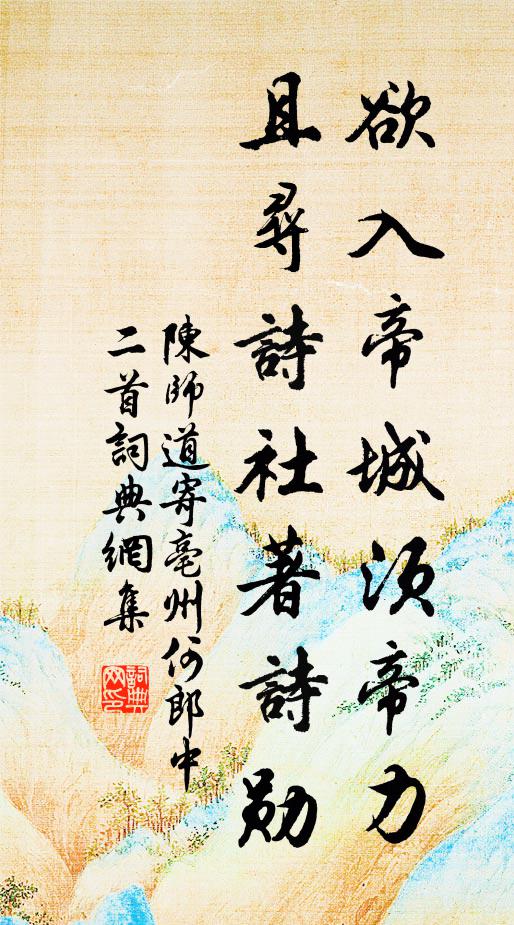 欲入帝城須帝力
且尋詩社著詩勛
陳師道寄亳州何郎中
二首詞典網集
詞典
网印